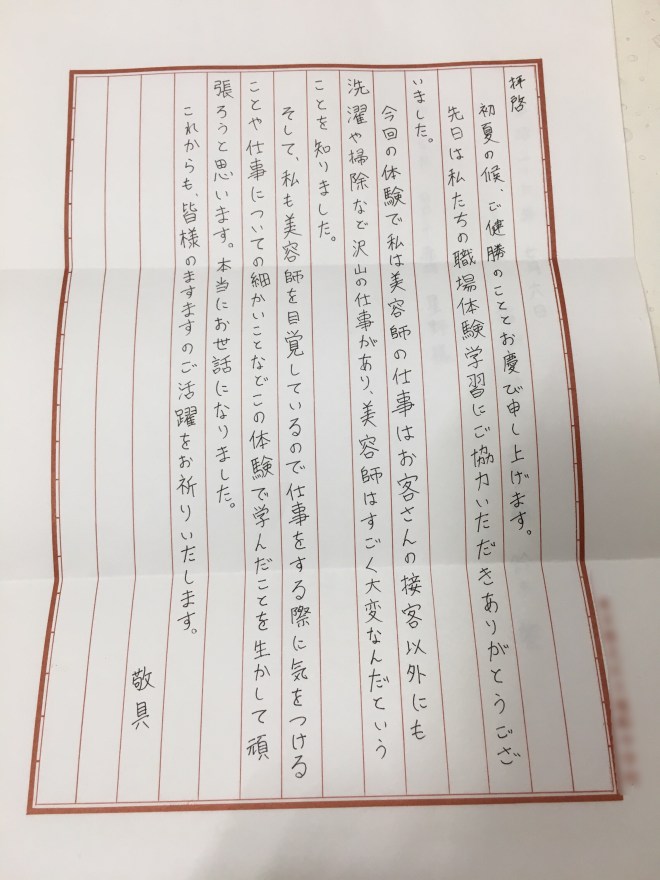 拝啓
初夏の候、ご健勝のこととお慶び申し上げます。
先日は私たちの職場体験学習にご協力いただきありがとうござ
いました。
今回の体験で私は美容師の仕事はお客さんの接客以外にも
洗濯や掃除など沢山の仕事があり、美容師はすごく大変なんだという
ことを知りました。
そして、私も美容師を目覚しているので仕事をする際に気をつける
ことや仕事についての細かいことなどこの体験で学んだことを生かして頑
張ろうと思います。本当にお世話になりました。
これからも、皆様のますますのご活躍をお祈りいたします。
敬具